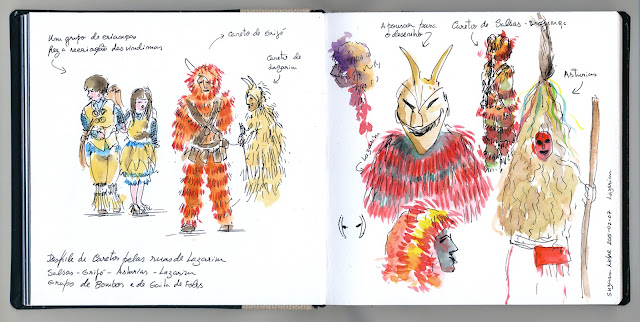 Um grupo de crianças
fez a recriação das vindimas
Careto de Grijó
Careto de
Lazarim
Desfile de Caretos pelas ruas de Lazarim
Salsas - Grijó - Astúrias - Lazarim
Grupo de Bombos e de Gaita de Foles
A pousar para
o desenho
Careto de Salsas - Bragança
Asturias
Lazarim
Lazarim